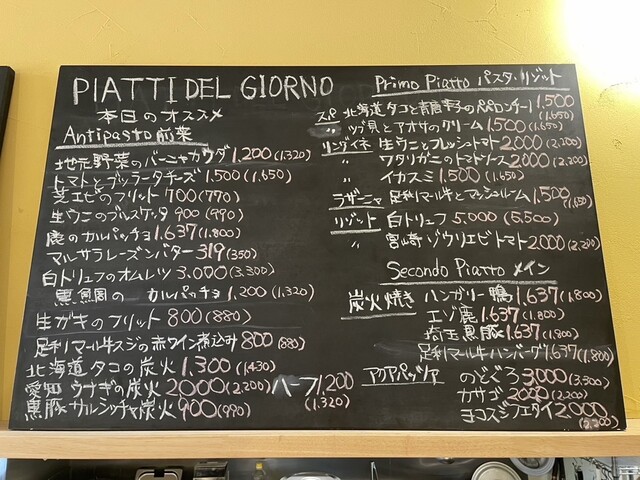 PIATTI DEL GIORNO
本日のオススメ
Antipasto 前菜
地元野菜のバーニャカウダ 1,200 (1,320)
トマトとブッラータチーズ 1,500 (1,650)
芝エビのフリット 700 (770)
生ウニのブルスケッタ 900 (990)
鹿のカルパッチョ 1,637 (1,800)
マルサラレーズンバター 319 (350)
白トリュフのオムレツ 3,000 (3,300)
カルパッチョ 1,200 (1,320)
生ガキのフリット 800 (880)
足利マール牛スジの赤ワイン煮込み 800 (880)
北海道タコの炭火 1,300 (1,430)
愛知ウナギの炭火 2000 (2,200) ハーフ 1,200 (1,320)
黒豚サルシッチャ炭火 900 (990)
Primo Piatto パスタ・リゾット
スパ 北海道タコと青唐辛子のペペロンチーノ 1,500 (1,650)
〃 ツブ貝とアオサのクリーム 1,500 (1,650)
リングイネ 生ウニとフレッシュトマト 2,000 (2,200)
〃 ワタリガニのトマトソース 2,000 (2,200)
〃 イカスミ 1,500 (1,650)
ラザーニャ 足利マール牛とマッシュルーム 1,500 (1,650)
リゾット 白トリュフ 5,000 (5,500)
〃 宮崎ゾウリエビトマト 2,000 (2,200)
Secondo Piatto メイン
炭火焼き ハンガリー鴨 1,637 (1,800)
エゾ鹿 1,637 (1,800)
埼玉黒豚 1,637 (1,800)
足利マール牛ハンバーグ 1,637 (1,800)
アクアパッツァ のどぐろ 3,000 (3,300)
カサゴ 2000 (2,200)
ヨコスジフエダイ 2,000 (2,200)